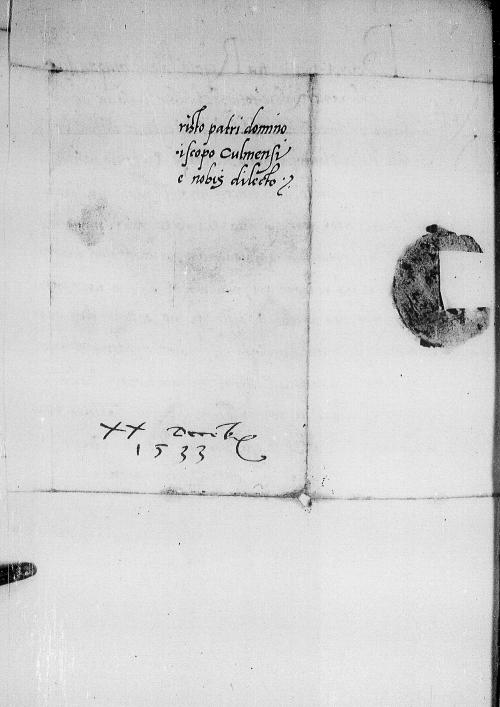 risto patri domino
iscopo Culmensi
e nobis dilecto
XX Decemb
1533